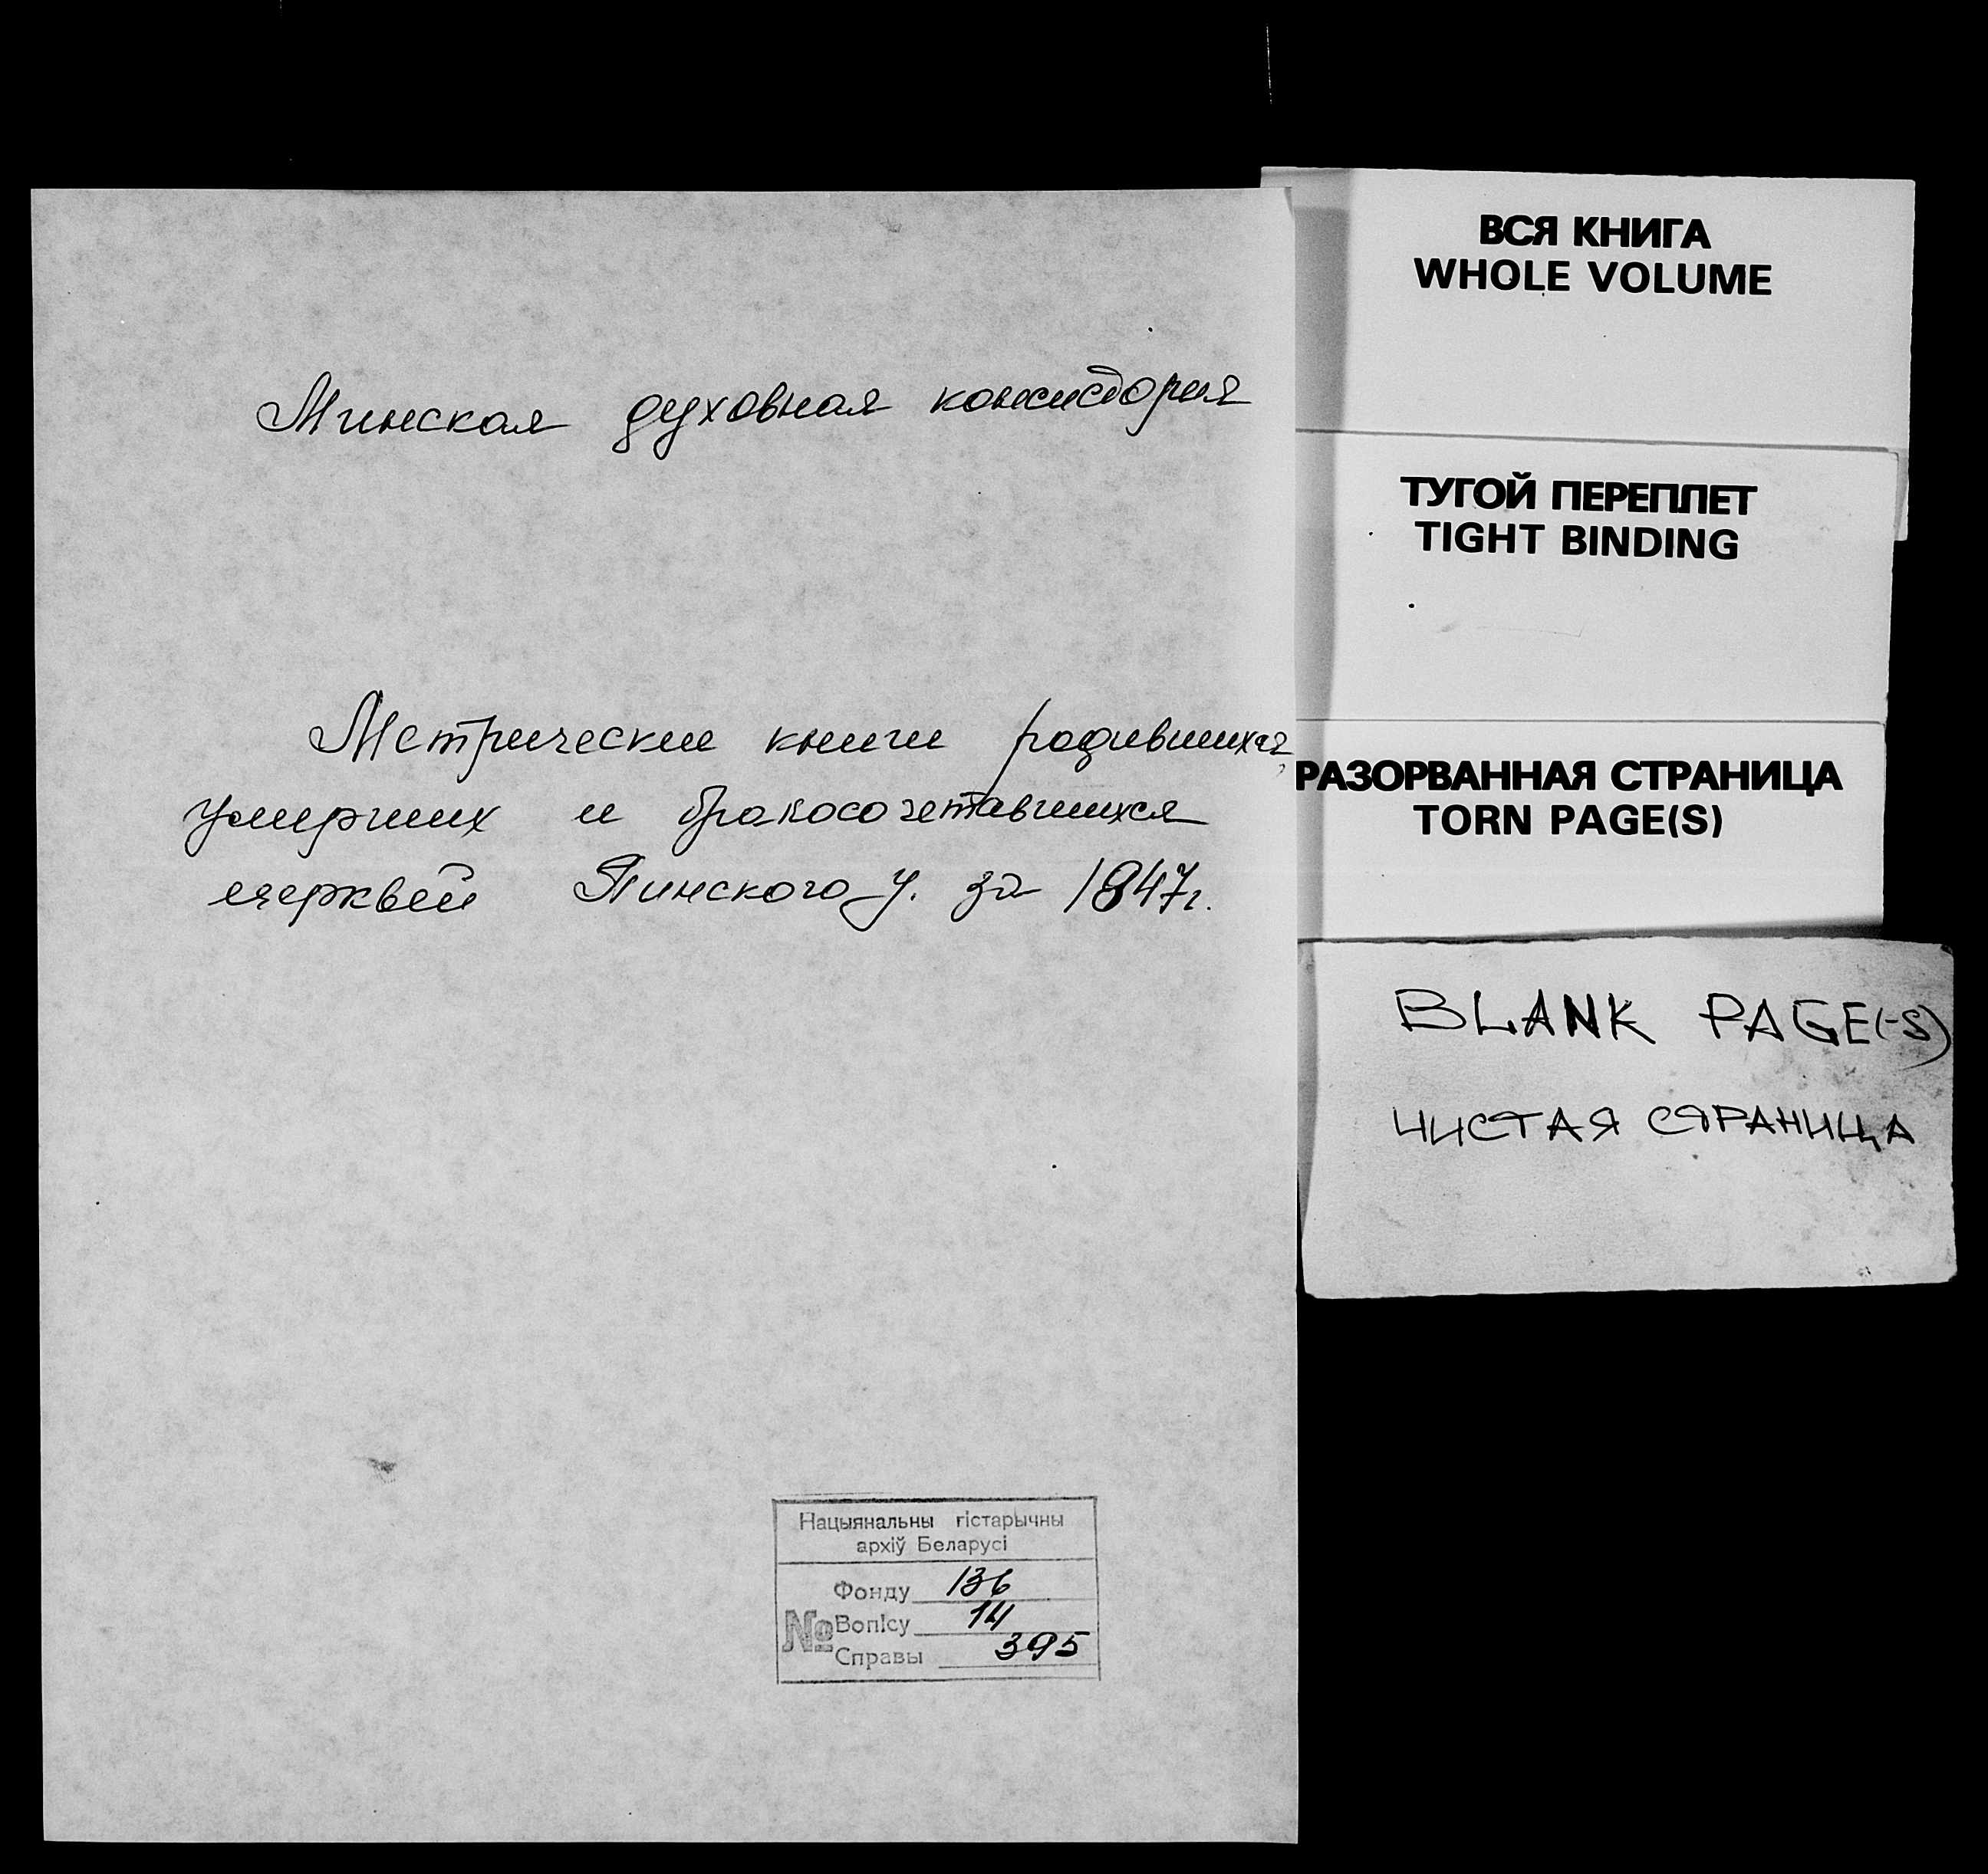 Минская духовная консистория
Метрические книги родившихся,
умерших и бракосочетавшихся
церквей Пинского у. за 1847г.
Нацыянальны гістарычны
архіў Беларусі
Фонду 136
№ Вопісу 14
Справы 395
ВСЯ КНИГА
WHOLE VOLUME
ТУГОЙ ПЕРЕПЛЕТ
TIGHT BINDING
РАЗОРВАННАЯ СТРАНИЦА
TORN PAGE(S)
BLANK PAGE(-S)
ЧИСТАЯ СТРАНИЦА